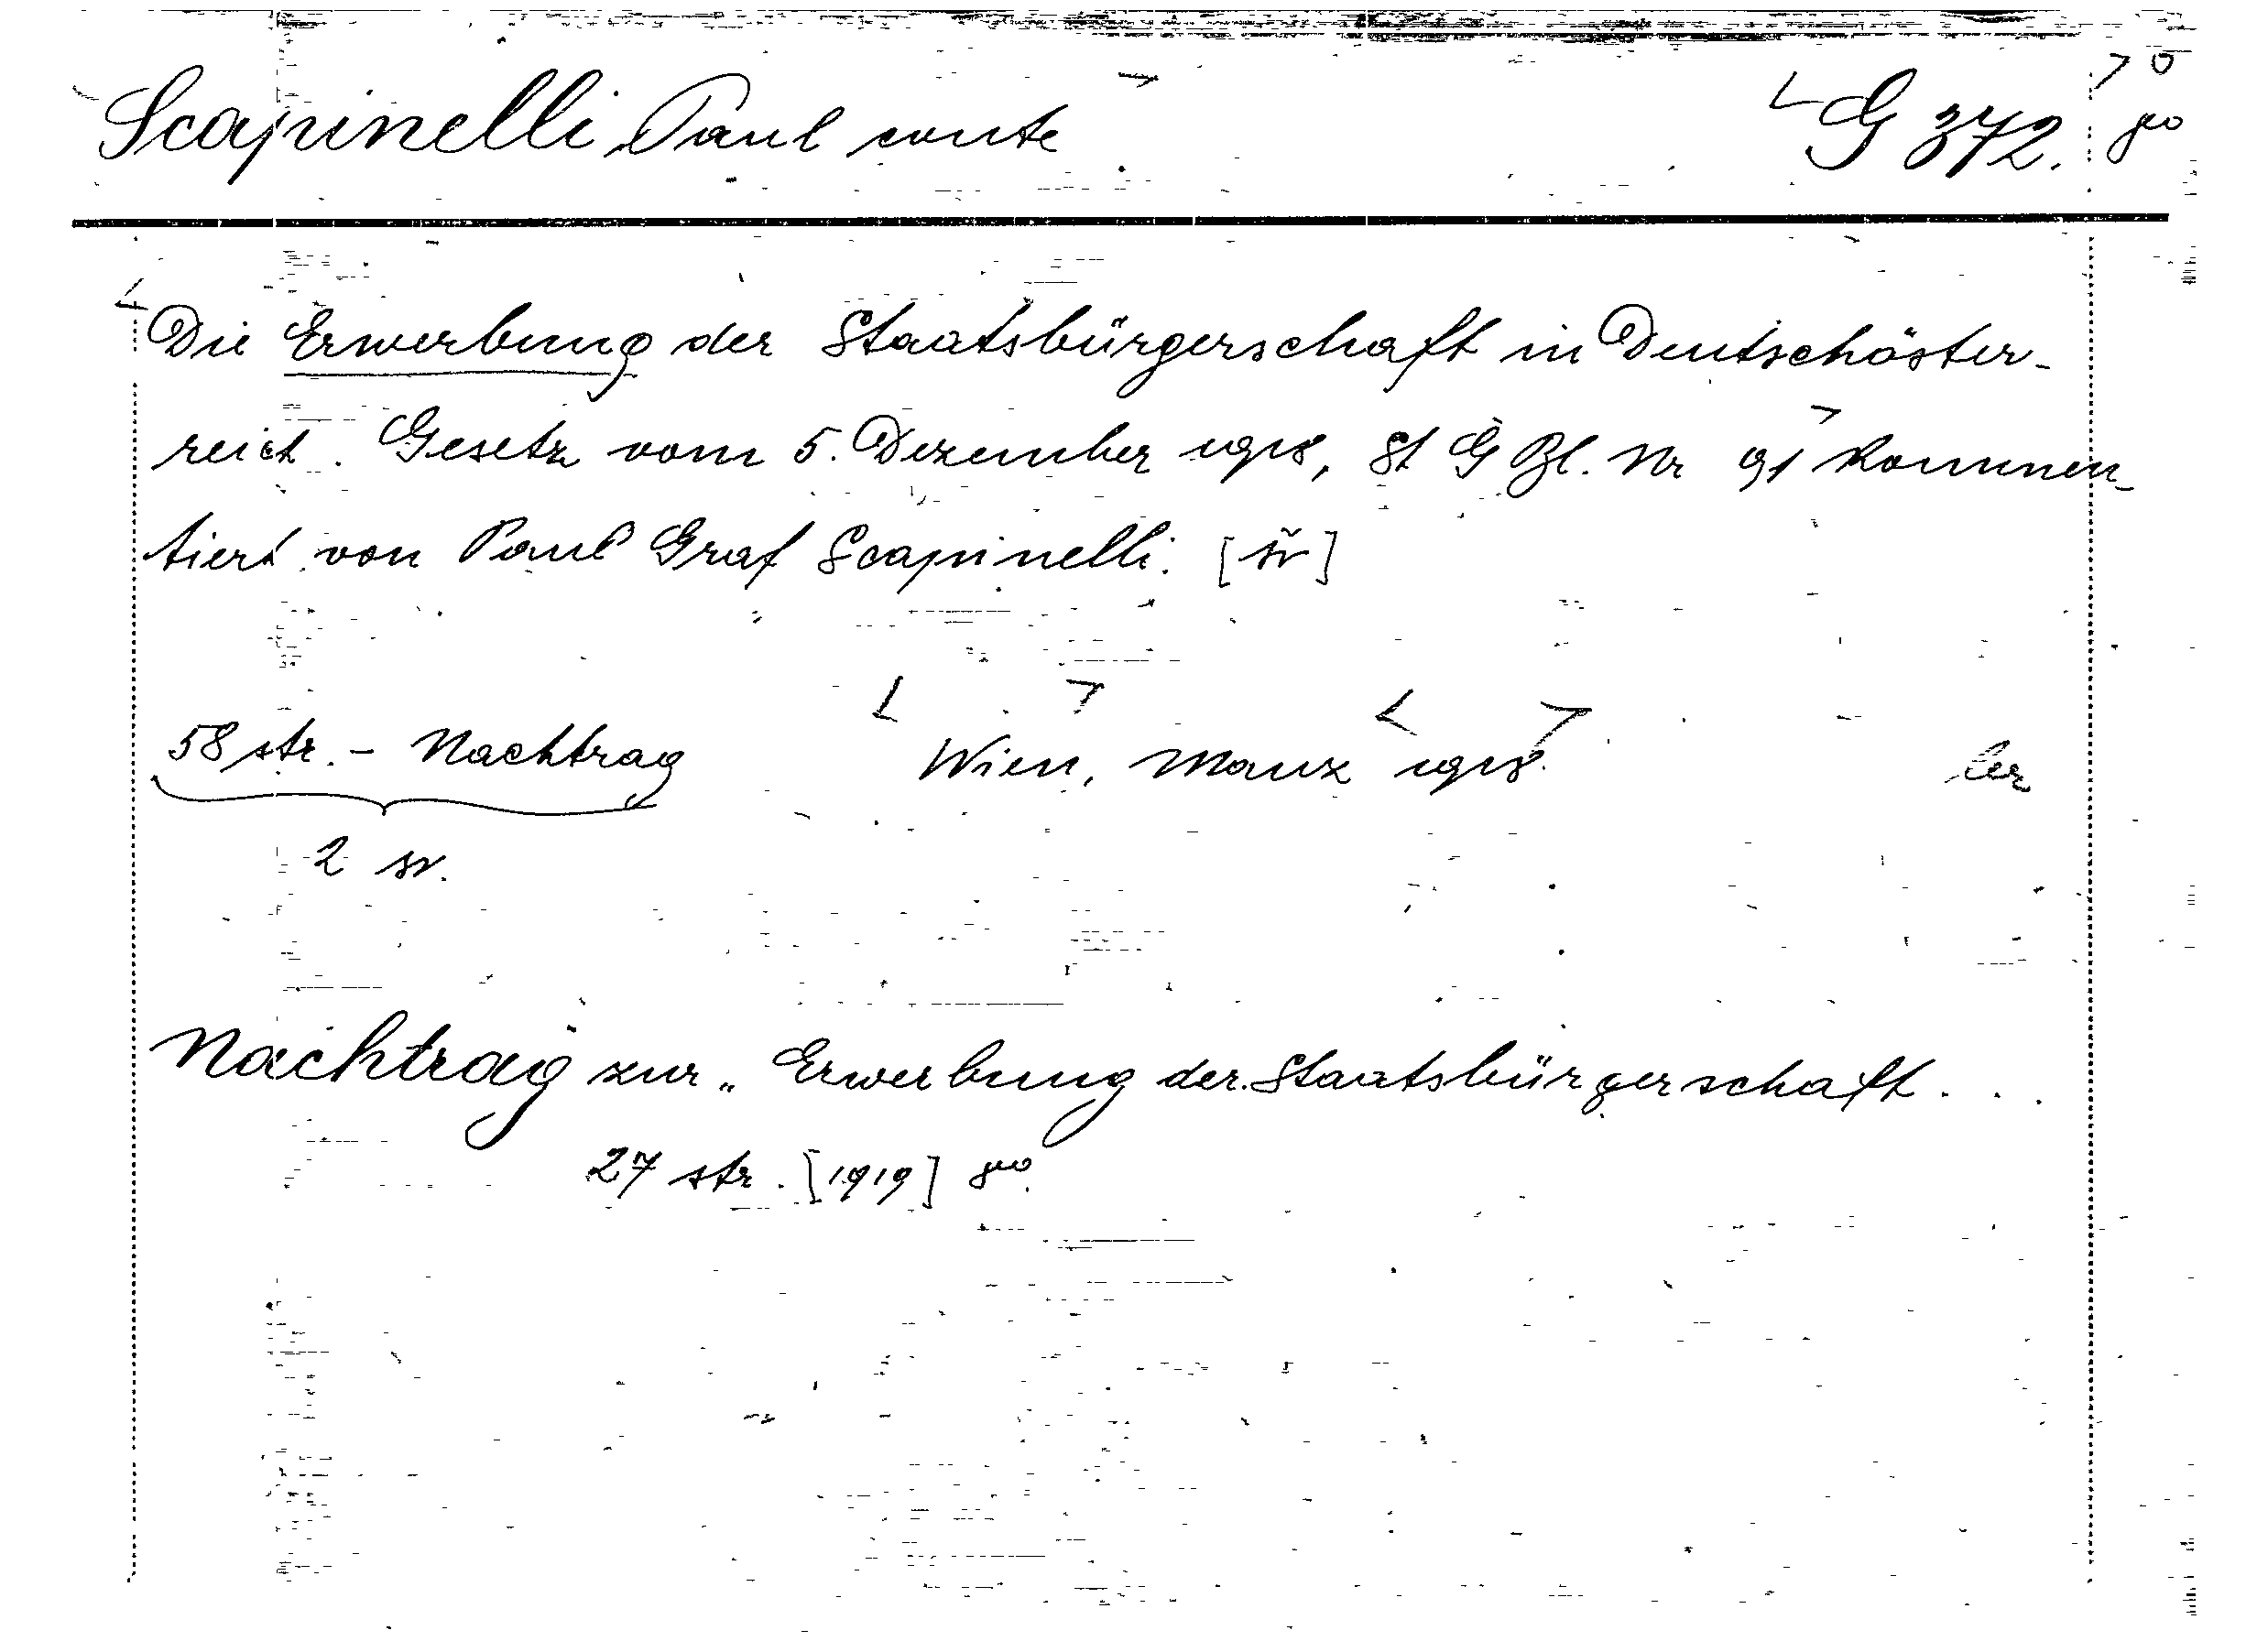 Scapinelli Paul conte G 372. 8o
Die Erwerbung der Staatsbürgerschaft in Deutschöster-
reich. Gesetz vom 5. Dezember 1918, St G Bl. Nr 91 kommen-
tiert von Paul Graf Scapinelli.
58 str. - Nachtrag Wien, Manz 1918.
2 sv.
Nachtrag zur „Erwerbung der Staatsbürgerschaft...
27 str. [1919] 8o.